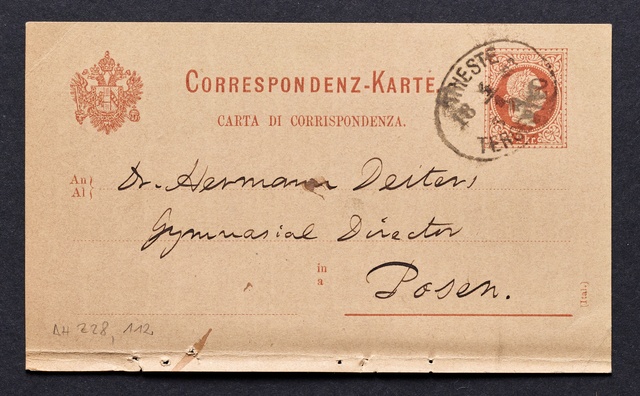 CORRESPONDENZ-KARTE
CARTA DI CORRISPONDENZA.
TRIESTE
18
kr.
An
Al
Dr. Hermann Deiters
Gymnasial Director
in
a
Posen.
(Ital.)
DH Z28, 112.